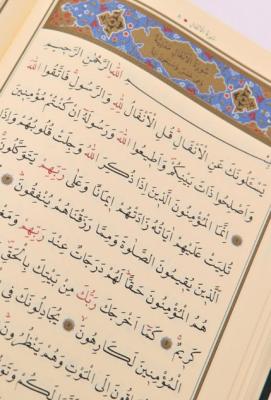 سورة الانفال
سورة الانفال مدنية
بسم الله الرحمن الرحيم
يَسْـَٔلُونَكَ عَنِ الْاَنْفَالِ قُلِ الْاَنْفَالُ لِلّٰهِ وَالرَّسُولِ فَاتَّقُوا اللّٰهَ
وَاَصْلِحُوا ذَاتَ بَيْنِكُمْ وَاَطِيعُوا اللّٰهَ وَرَسُولَهُ اِنْ كُنْتُمْ مُؤْمِنِينَ
اِنَّمَا الْمُؤْمِنُونَ الَّذِينَ اِذَا ذُكِرَ اللّٰهُ وَجِلَتْ قُلُوبُهُمْ وَاِذَا
تُلِيَتْ عَلَيْهِمْ اٰيَاتُهُ زَادَتْهُمْ اِيمَانًا وَعَلٰى رَبِّهِمْ يَتَوَكَّلُونَ
الَّذِينَ يُقِيمُونَ الصَّلٰوةَ وَمِمَّا رَزَقْنَاهُمْ يُنْفِقُونَ
هُمُ الْمُؤْمِنُونَ حَقًّا لَهُمْ دَرَجَاتٌ عِنْدَ رَبِّهِمْ وَمَغْ
كَرِيمٌ كَمَا اَخْرَجَكَ رَبُّكَ مِنْ بَيْتِكَ بِالْحَقِّ
الْمُؤْمِنِينَ لَكَارِهُونَ يُجَادِلُونَكَ فِي
يُسَاقُونَ اِلَى الْمَوْتِ وَهُمْ يَنْظُرُونَ
لَكُمْ وَتَوَ